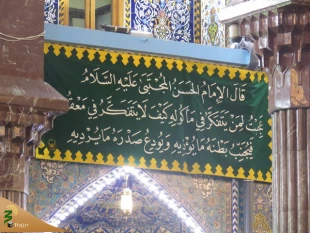 قَالَ الإِمَامُ الحَسَنُ المُجْتَبَى عَلَيْهِ السَّلَامُ
عَجِبْتُ لِمَنْ يَتَفَكَّرُ فِي مَأْكُولِهِ كَيْفَ لَا يَتَفَكَّرُ فِي مَعْقُولِهِ
فَيُجَنِّبُ بَطْنَهُ مَا يُؤْذِيهِ وَيُودِعُ صَدْرَهُ مَا يُرْدِيهِ